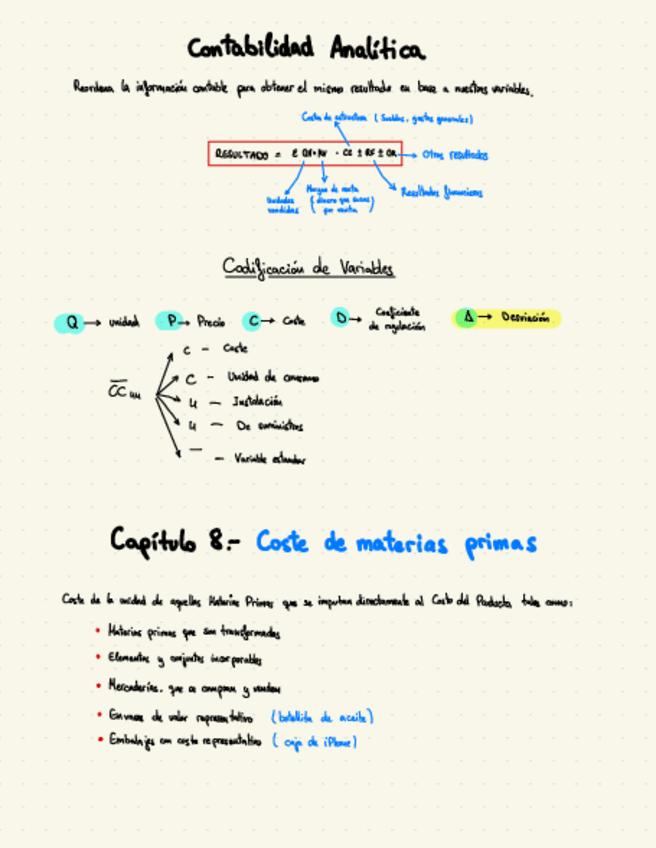 Contabilidad Analítica
Reordena la información contable para obtener el mismo resultado en base a nuestras variables.
Costes de estructura (Sueldos, gastos generales)
RESULTADO = Σ QV·MV - CE ± RF ± OR → Otros resultados
Unidades vendidas
Margen de venta (dinero que ganas por venta)
Resultados financieros
Codificación de Variables
Q → unidad P → Precio C → Coste D → Coeficiente de regulación Δ → Desviación
C - Coste
C - Unidad de consumo
CC uu
u - Instalación
u - De suministros
— - Variable estandar
Capítulo 8.- Coste de materias primas
Coste de la unidad de aquellas Materias Primas que se imputan directamente al Coste del Producto tales como:
• Materias primas que son transformadas
• Elementos y conjuntos incorporables
• Mercaderías, que se compran y venden
• Envases de valor representativo (botellita de aceite)
• Embalajes con coste representativo (caja de iPhone)